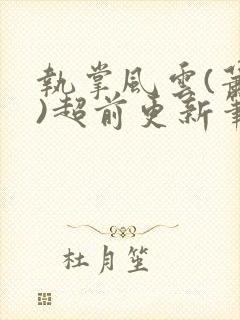 執掌風雲(
)超前更新
杜月笙